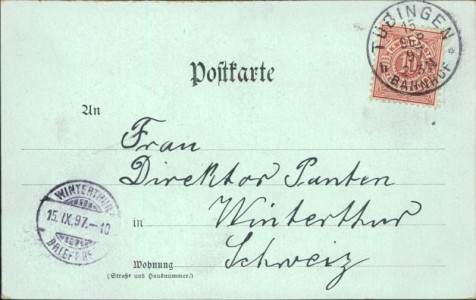 TÜBINGEN
BAHNHOF
Postkarte
An
Frau
Direktor Panten
in Winterthur
Schweiz
WINTERTHUR
15.IX.97.-10
Wohnung
(Straße und Hausnummer.)